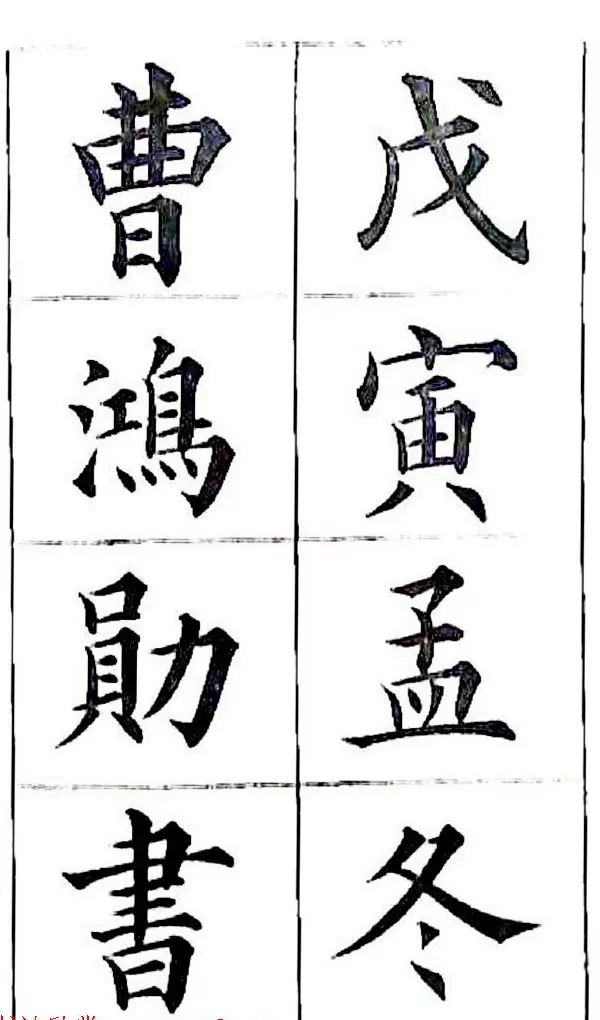 戊寅孟冬
曹鴻勛書